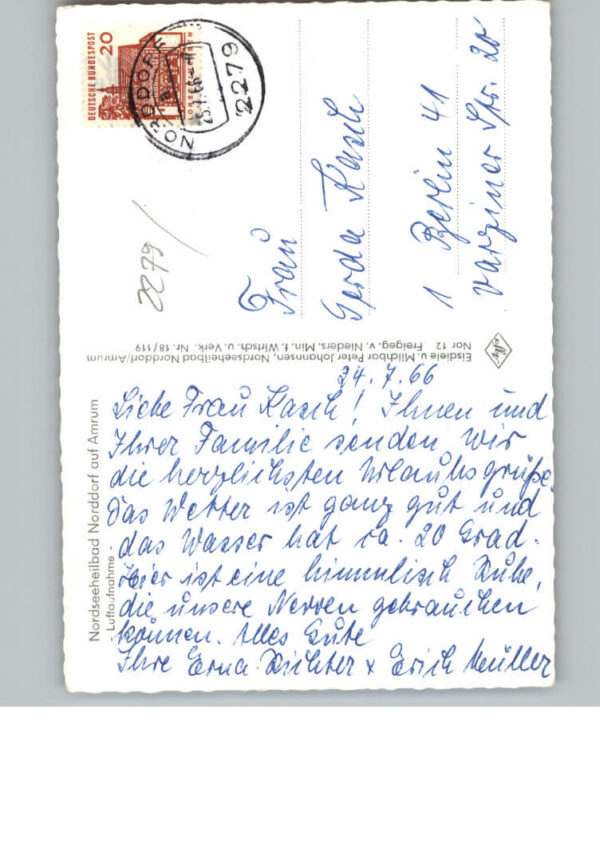 DEUTSCHE BUNDESPOST
20
NORDDORF
2279
2279
Frau
Gerda Kasch
1 Berlin 41
Varziner Str. 20
Eisdiele u Milchbar Peter Johannsen, Nordseeheilbad Norddorf/Amrum
Nor 12 Freigeg. v. Nieders. Min. f. Wirtsch. u. Verk. Nr. 18/119
Nordseeheilbad Norddorf auf Amrum
- Luftaufnahme -
24.7.66
Liebe Frau Kasch! Ihnen und
Ihrer Familie senden wir
die herzlichsten Urlaubsgrüße.
Das Wetter ist ganz gut und
das Wasser hat ca. 20 Grad.
Hier ist eine himmlisch Ruhe,
die unsere Nerven gebrauchen
können. Alles Gute
Ihre Erna Richter + Erich Müller